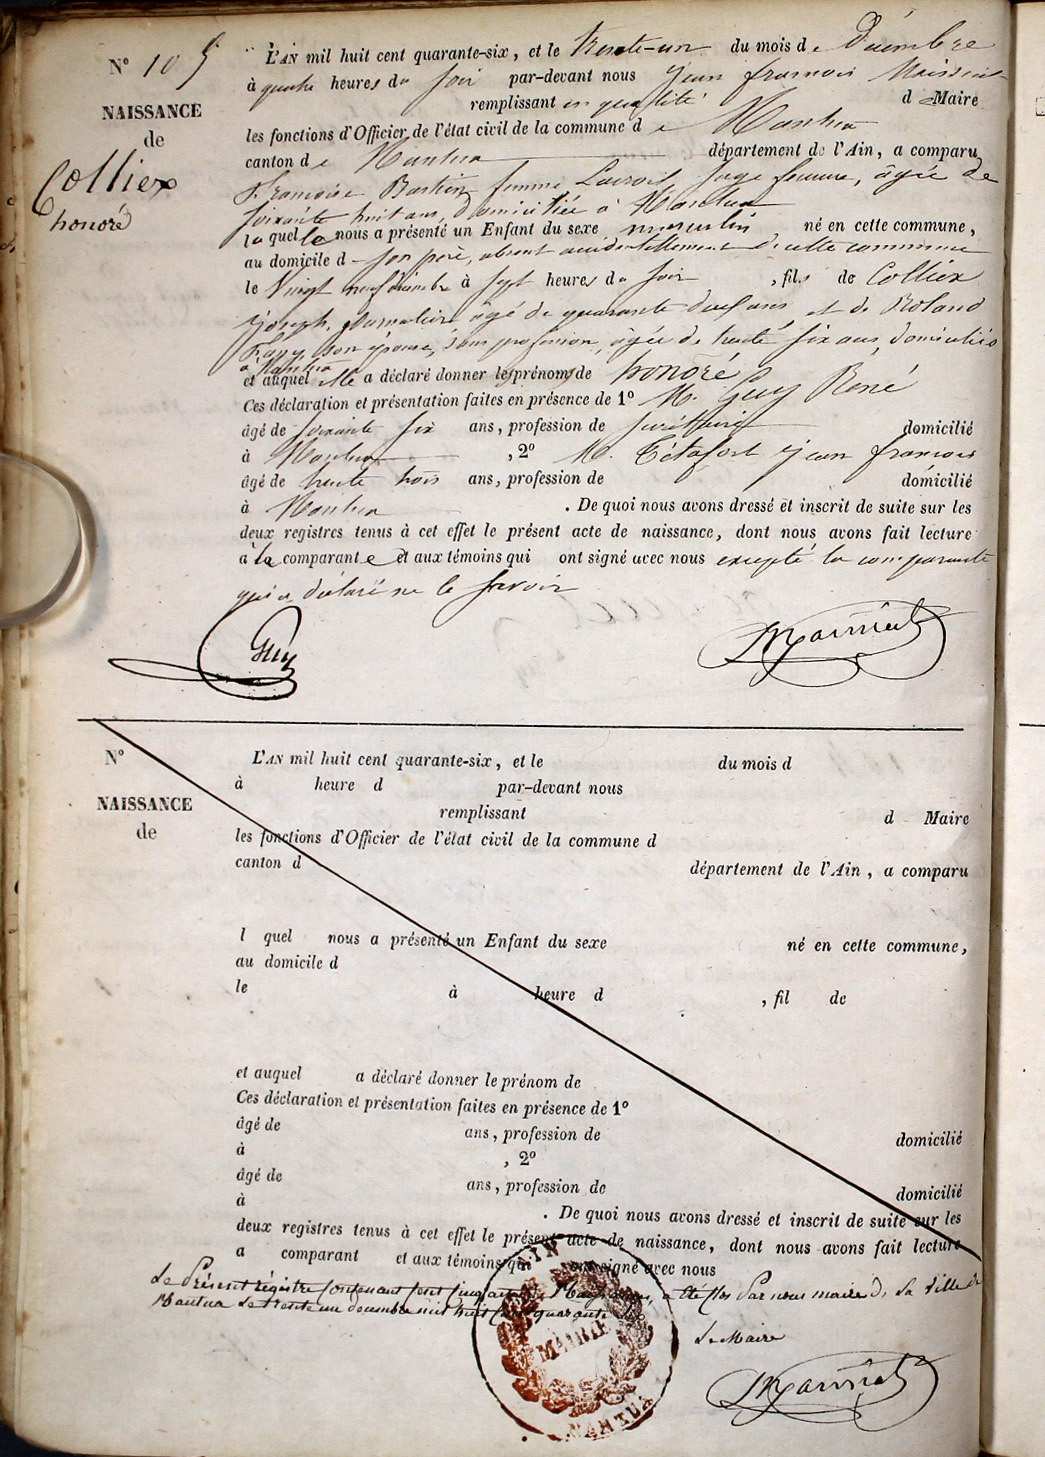 N° 105
NAISSANCE
de
Colliex
honoré
L'AN mil huit cent quarante-six, et le trente-un du mois de Décembre
à quatre heures du soir par-devant nous jean francois
remplissant en qualité de Maire
les fonctions d'Officier de l'état civil de la commune de Nantua
canton de Nantua département de l'Ain, a comparu
Francoise femme Lacroix, sage femme, âgée de
soixante huit ans, domiciliée à Nantua
laquelle nous a présenté un Enfant du sexe masculin né en cette commune,
au domicile d son père, absent accidentellement de cette commune
le Vingt neuf décembre à sept heures du soir, fils de Colliex
joseph, âgé de quarante deux ans et de Roland
Fany son épouse, sans profession, âgée de trente six ans, domiciliés
à Nantua
et auquel elle a déclaré donner le prénom de honoré
Ces déclaration et présentation faites en présence de 1° M. Guy René
âgé de soixante six ans, profession de secrétaire domicilié
à Nantua, 2° M. Tétafort jean francois
âgé de trente trois ans, profession de domicilié
à Nantua. De quoi nous avons dressé et inscrit de suite sur les
deux registres tenus à cet effet le présent acte de naissance, dont nous avons fait lecture
à la comparante et aux témoins qui ont signé avec nous excepté la comparante
qui a déclaré ne le savoir
Guy
N°
NAISSANCE
de
L'AN mil huit cent quarante-six, et le du mois d
à heure d par-devant nous
remplissant d Maire
les fonctions d'Officier de l'état civil de la commune d
canton d département de l'Ain, a comparu
l quel nous a présenté un Enfant du sexe né en cette commune,
au domicile d
le à heure d, fil de
et auquel a déclaré donner le prénom de
Ces déclaration et présentation faites en présence de 1°
âgé de ans, profession de domicilié
à , 2°
âgé de ans, profession de domicilié
à . De quoi nous avons dressé et inscrit de suite sur les
deux registres tenus à cet effet le présent acte de naissance, dont nous avons fait lecture
a comparant et aux témoins qui ont signé avec nous
Le Présent régistre contenant a été clos Par nous maire de la Ville de
Nantua Le trente un decembre mil huit cent quarante
Le Maire
AIN
MAIRIE
NANTUA